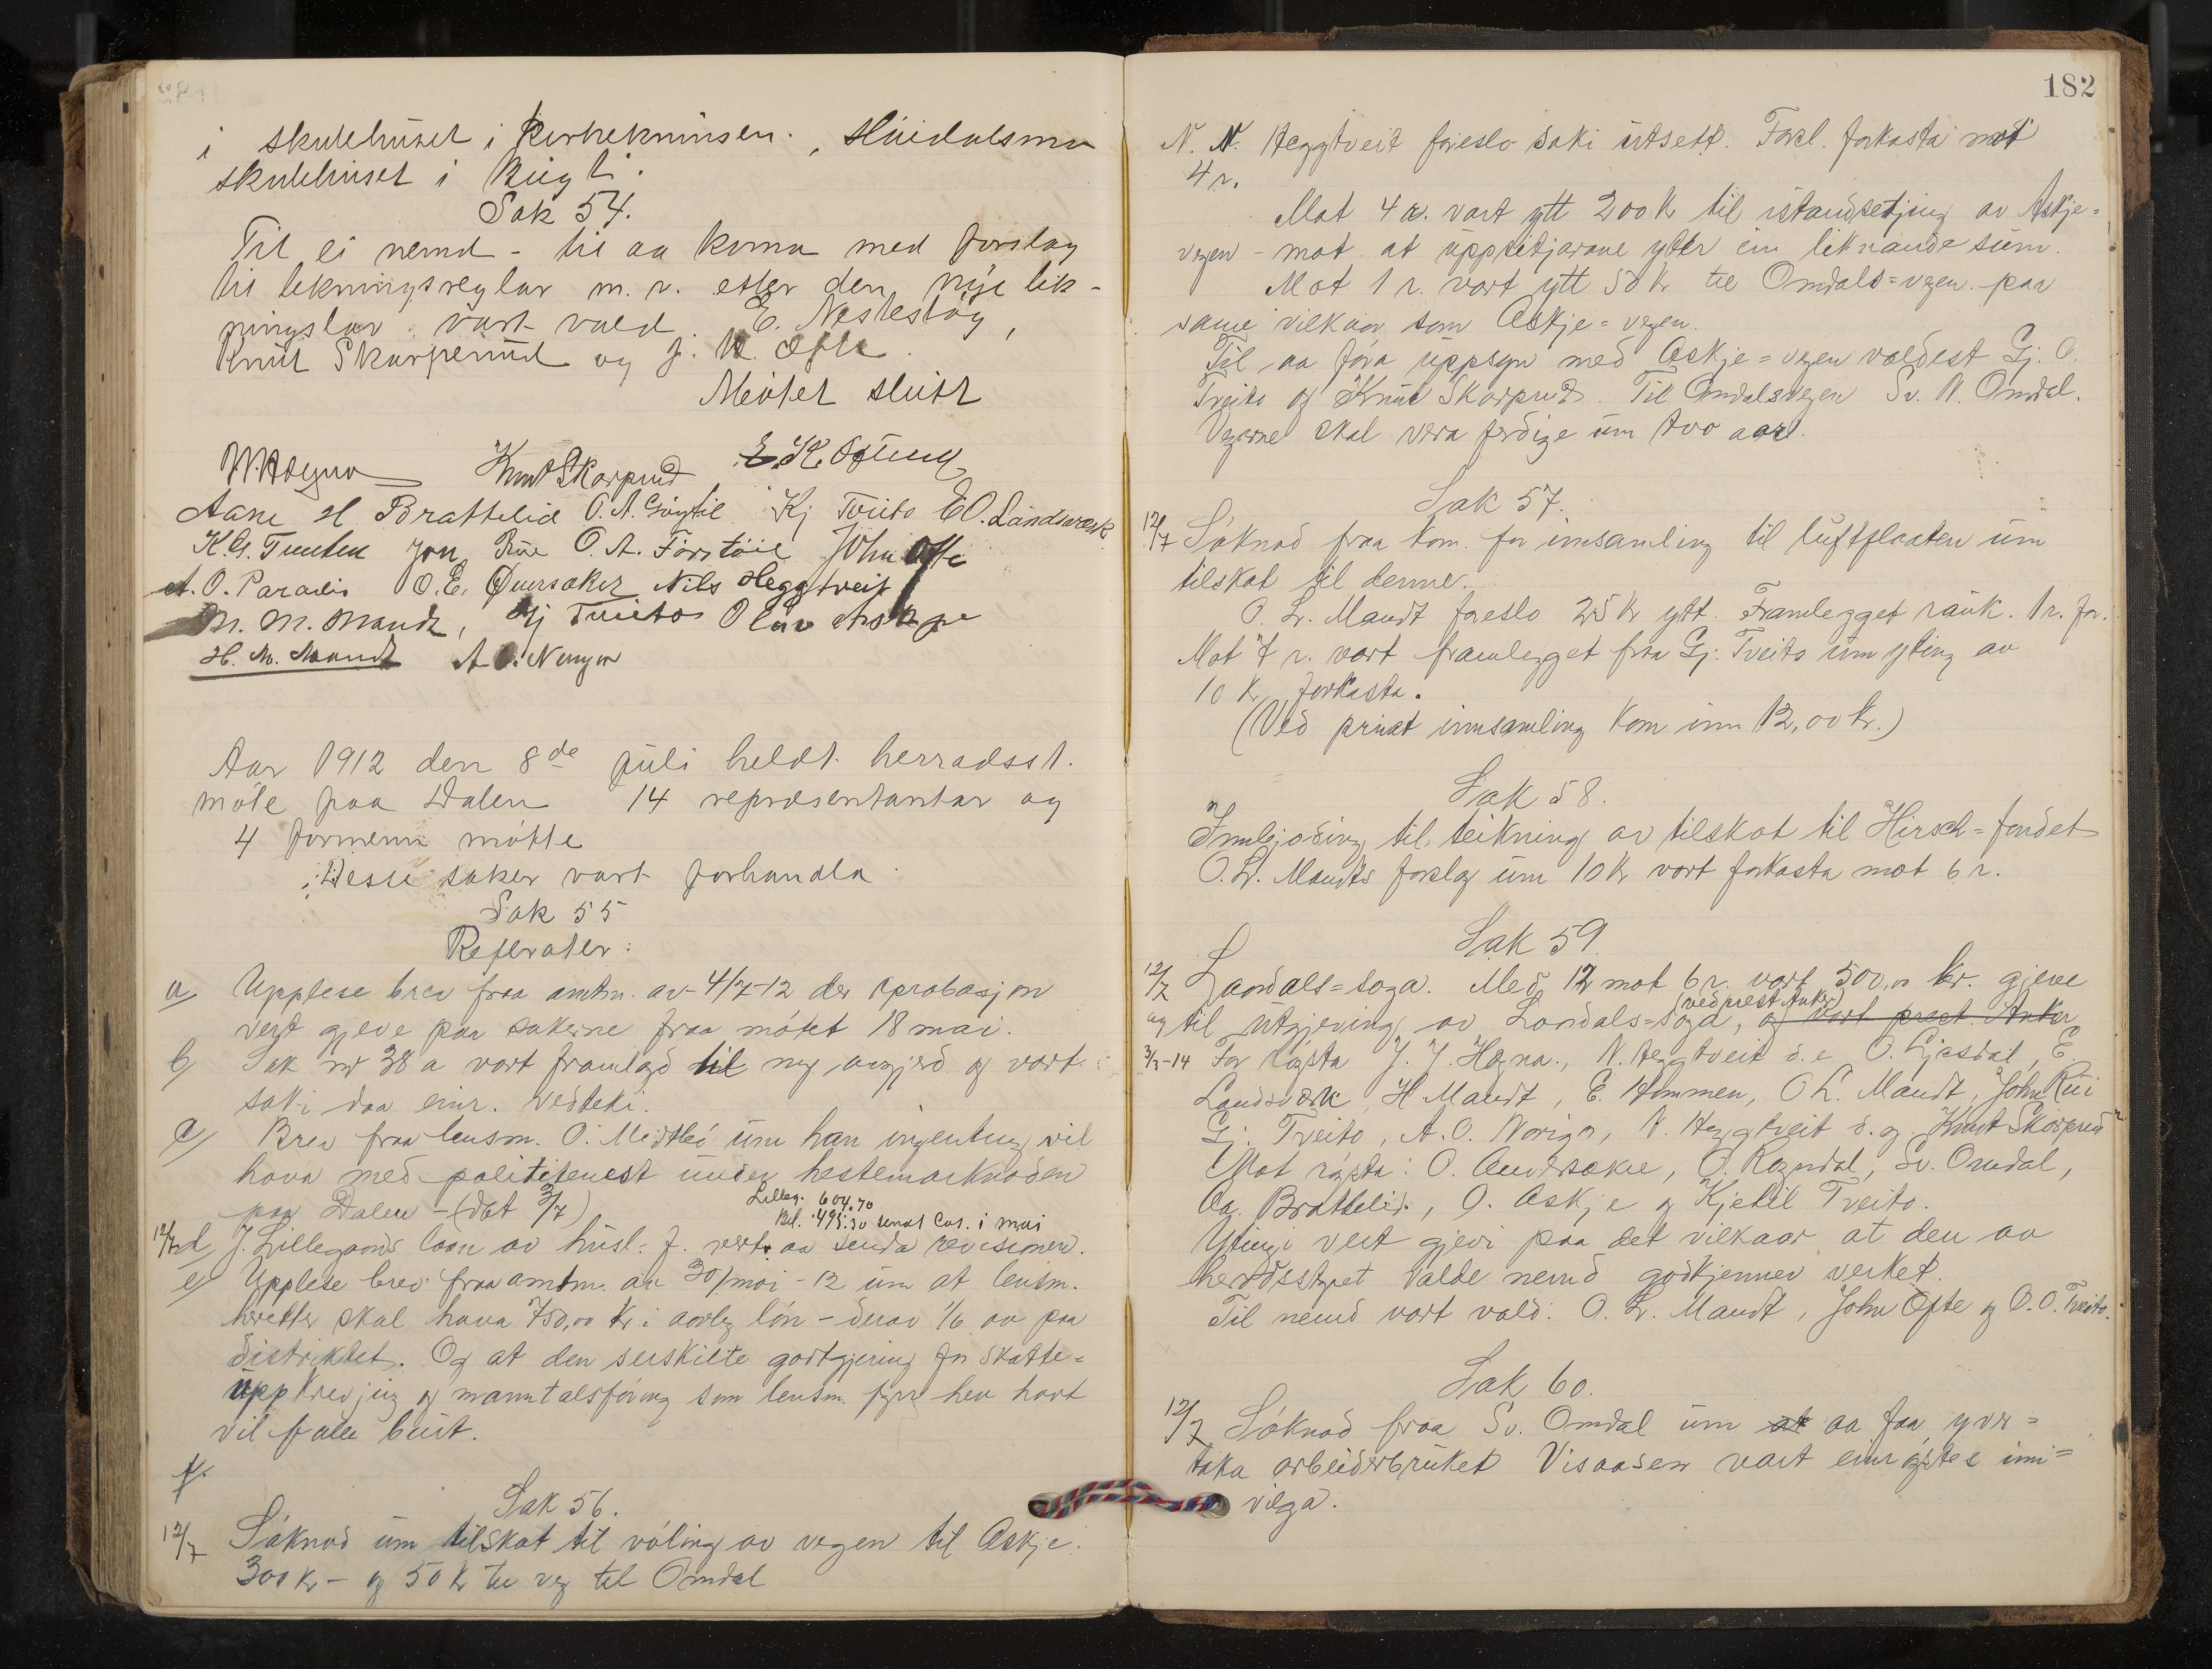 i skulehuset i Kyrkekrinsen.,
skulehuset i
Sak 54.
Til ei nemd - til aa koma med forslag
til likningsreglar m.v. etter den nye lik-
ningslov vart vald. E.
Knut Skarperud og J. K. Ofte.
Møtet slutt
Knut Skarprud
Aane H Brattelid Kj Tveito E O. Landsverk
Jon Rue John Ofte
A. O. Paradis Nils Heggtveit
M. M. Mandt, Gj Tveito Olav Askje
H. M. Mandt
Aar 1912 den 8de juli heldt herradsst.
møte paa Dalen 14 repræsentantar og
4 formenn møtte
Desse saker vart forhandla
Sak 55
Referater:
a/ Upplese brev fraa amtm. av 4/7-12 der aprobasjon
vert gjeve paa sakerne fraa møtet 18 mai.
b/ Sak nr 38 a vort framlagd til ny avgjerd og vart
saki daa einr. vedteki.
c/ Brev fraa lensm. O. Midtbø üm han ingenting vil
hava med polititenest ünder hestemarknaden
paa Dalen - (dat 3/7)
Lilleg. 604.70
Bel. 495.30 senat Cas. i mai
12/7 d/ J. Lillegaards laan av husl. f. vert aa senda revisionen.
e/ Upplese brev fraa amtm. av 30/mai-12 üm at lensm.
heretter skal hava 750,00 kr. i aarleg løn - derav 1/6 av paa
distriktet. Og at den serskilte godtgjering for skatte=
üppkrevjing og manntalsføring som lensm. fyrr hev havt
vil falle burt.
f.
Sak 56.
12/7 Søknad üm tilskot til vøling av vegen til Askje.
300 kr - og 50 kr til veg til Omdal
182
N. N. Heggtveit foreslo saki ütsett. Forsl. forkasta mot
4 r.
Mot 4 r. vart ytt 200 kr til istandsetjing av Askje=
vegen - mot at üppsitjarane yter ein liknande süm.
Mot 1 r. vart ytt 50 kr til Omdals=vegen paa
same vilkaar som Askje=vegen.
Til aa føra üppsyn med Askje=vegen valdest Gj. O.
Tveito og Knüt Skarprud. Til Omdalsvegen Sv. N. Omdal.
Vegarne skal vera ferdige üm tvo aar.
Sak 57.
12/7 Søknad fraa kom. for innsamling til lüftflaaten üm
tilskot til denne.
O. L. Mandt foreslo 25 kr ytt. Framlegget fauk. 1 r. for.
Mot 7 r. vart framlegget fraa Gj. Tveito üm yting av
10 kr forkasta.
(Ved privat innsamling kom inn 12,00 kr.)
Sak 58.
Innbjoding til teikning av tilskot til Hirsch=fondet
O. L. Mandts forslag üm 10 kr vart forkasta mot 6 r.
Sak 59.
12/7 Laardals=soga. Med 12 mot 6 r. vart 500,00 kr. gjeve
(ved prest Anker)
og til ütgjeving av Laardals=soga, og vart prest Anker
3/3-14 For røysta J. J. Høgna, N. Heggtveit d.e. O. Gjøsdal, E.
Landsverk, H Mandt, E. Hommen, O L. Mandt, John Rui
Gj. Tveito, A. O. Norign, N. Heggtveit d.y. Knut Skarprud
Mot røysta: O. Qversøkre, O. Rogndal, Sv. Omdal,
Aa. Brattelid, O. Askje og Kjetil Tveito.
Ytingi vert gjevi paa det vilkaar at den av
heradsstyret valde nemd godkjenner verket.
Til nemd vart vald: O. L. Mandt, John Ofte og O. O. Tveito.
Sak 60.
12/7 Søknad fraa Sv. Omdal üm at aa faa yver=
taka arbeiderbrüket Visaasen vart einrøystes inn=
vilga.